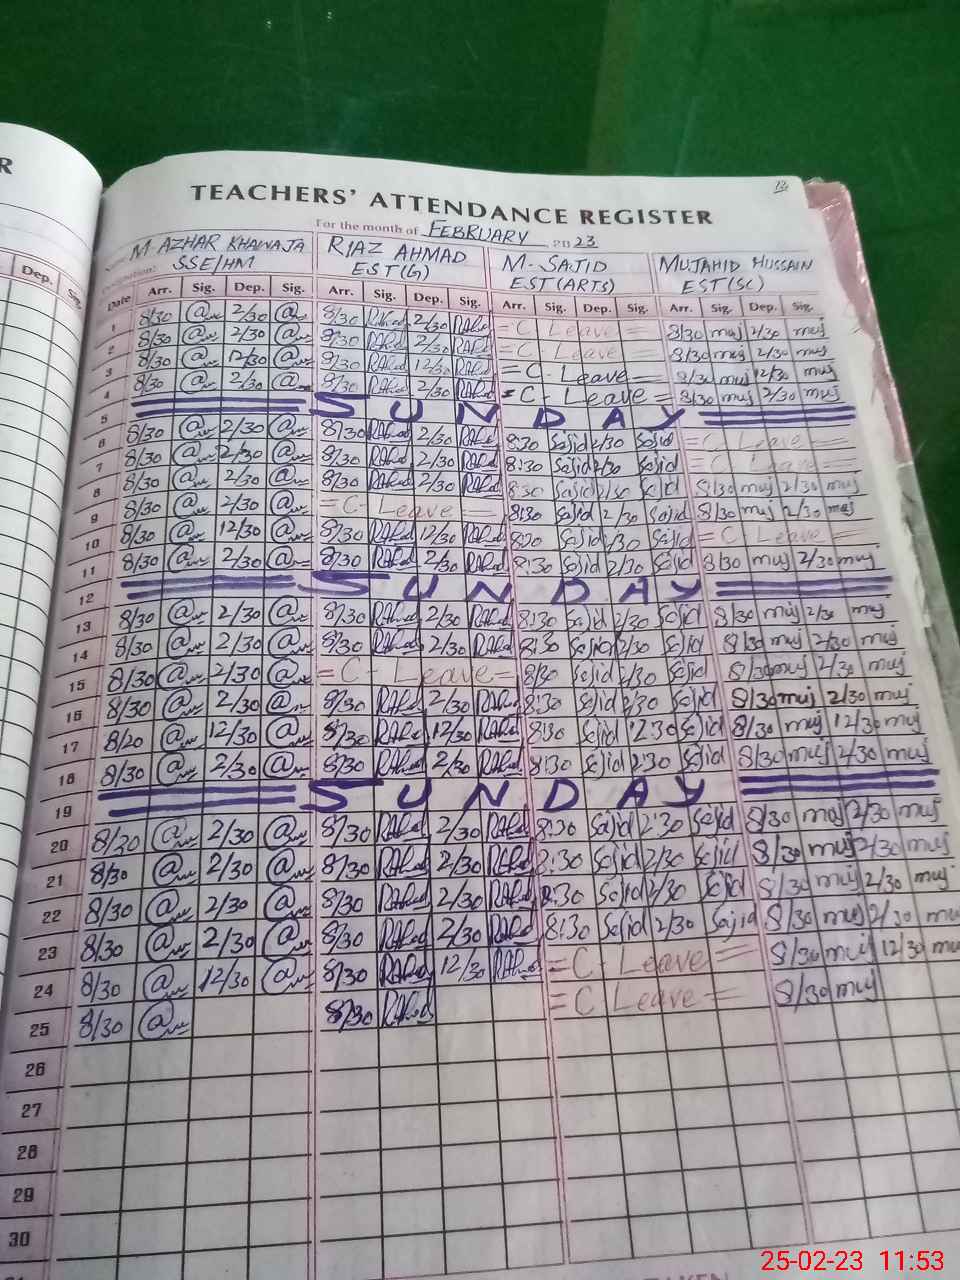 R
12
TEACHERS' ATTENDANCE REGISTER
For the month of FEBRUARY 2023
M AZHAR KHAWAJA RIAZ AHMAD M. SAJID MUJAHID HUSSAIN
SSE/HM EST(G) EST(ARTS) EST(SC)
Dep. Sig.
Date Arr. Sig. Dep. Sig. Arr. Sig. Dep. Sig. Arr. Sig. Dep. Sig. Arr. Sig. Dep. Sig.
1 8/30 2/30 8/30 2/30 = C Leave = 8/30 muj 2/30 muj
2 8/30 2/30 8/30 2/30 = C Leave = 8/30 muj 2/30 muj
3 8/30 12/30 8/30 12/30 = C- Leave = 8/30 muj 12/30 muj
4 8/30 2/30 8/30 2/30 = C- Leave = 8/30 muj 2/30 muj
5 SUNDAY
6 8/30 2/30 8/30 2/30 8:30 Sajid 2/30 Sajid = C- Leave =
7 8/30 2/30 8/30 2/30 8:30 Sajid 2/30 Sajid = C Leave =
8 8/30 2/30 8/30 2/30 8:30 Sajid 2/30 Sajid 8/30 muj 2/30 muj
9 8/30 2/30 = C- Leave = 8:30 Sajid 2/30 Sajid 8/30 muj 2/30 muj
10 8/30 12/30 8/30 12/30 8:30 Sajid Sajid = C Leave =
11 8/30 2/30 8/30 2/30 8:30 Sajid 2/30 Sajid 8/30 muj 2/30 muj
12 SUNDAY
13 8/30 2/30 8/30 2/30 8:30 Sajid 2/30 Sajid 8/30 muj 2/30 muj
14 8/30 2/30 8/30 2/30 8:30 Sajid 2/30 Sajid 8/30 muj 2/30 muj
15 8/30 2/30 = C- Leave = 8/30 Sajid 2/30 Sajid 8/30 muj 2/30 muj
16 8/30 2/30 8/30 2/30 8:30 Sajid 2/30 Sajid 8/30 muj 2/30 muj
17 8/20 12/30 8/30 12/30 8:30 Sajid 12:30 Sajid 8/30 muj 12/30 muj
18 8/30 2/30 8/30 2/30 8:30 Sajid 2:30 Sajid 8/30 muj 2/30 muj
19 SUNDAY
20 8/20 2/30 8/30 2/30 8:30 Sajid 2:30 Sajid 8/30 muj 2/30 muj
21 8/30 2/30 8/30 2/30 8:30 Sajid 2/30 Sajid 8/30 muj 2/30 muj
22 8/30 2/30 8/30 2/30 8:30 Sajid 2/30 Sajid 8/30 muj 2/30 muj
23 8/30 2/30 8/30 2/30 8:30 Sajid 2/30 Sajid 8/30 muj 2/30 muj
24 8/30 12/30 8/30 12/30 = C- Leave = 8/30 muj 12/30 muj
25 8/30 8/30 = C Leave = 8/30 muj
26
27
28
29
30
25-02-23 11:53